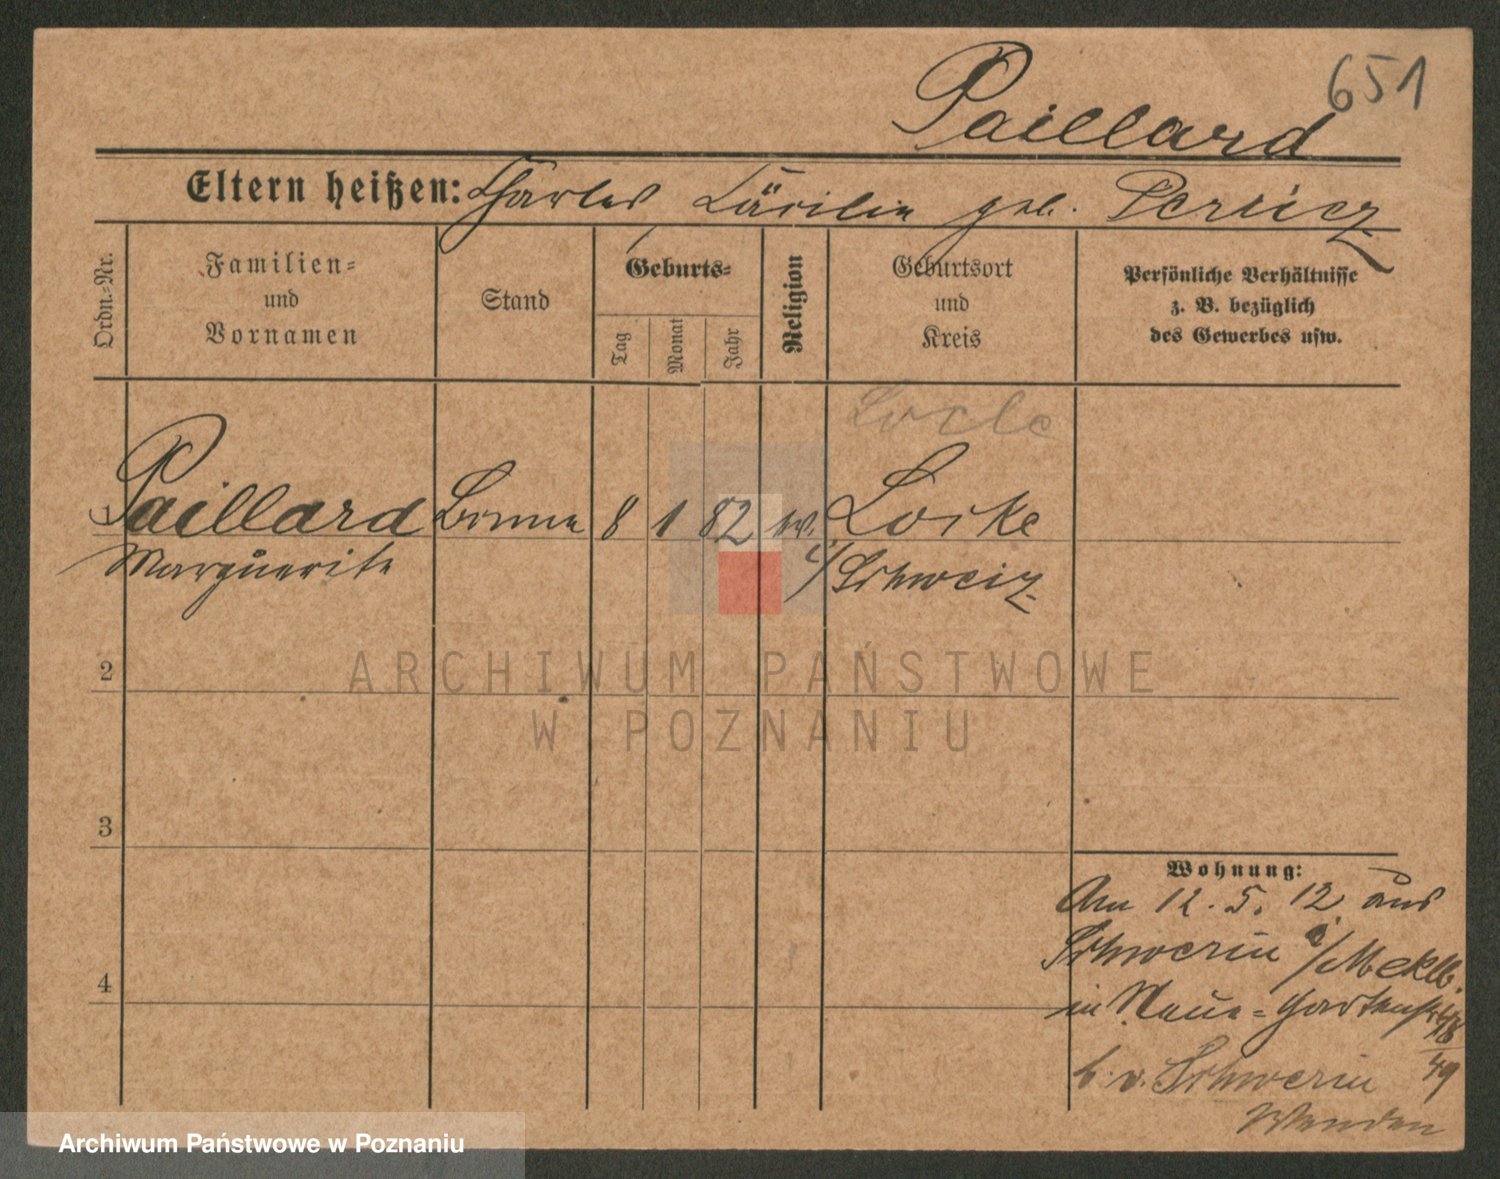 651
Paillard
Eltern heißen: Charles Cäcilie geb.
Ordn.-Nr.
Familien-
und
Vornamen
Stand
Geburts-
Tag
Monat
Jahr
Religion
Geburtsort
und
Kreis
Persönliche Verhältnisse
z. B. bezüglich
des Gewerbes usw.
Locle
1 Paillard Bonne 8 1 82 ev. Lockle
Marguerite i/Schweiz
2
ARCHIWUM PAŃSTWOWE
W POZNANIU
3
Wohnung:
Am 12. 5. 12 aus
Schwerin i/Meklb.
4
in Neue-Gartenstr.
49
b. v. Schwerin
Wenden
Archiwum Państwowe w Poznaniu